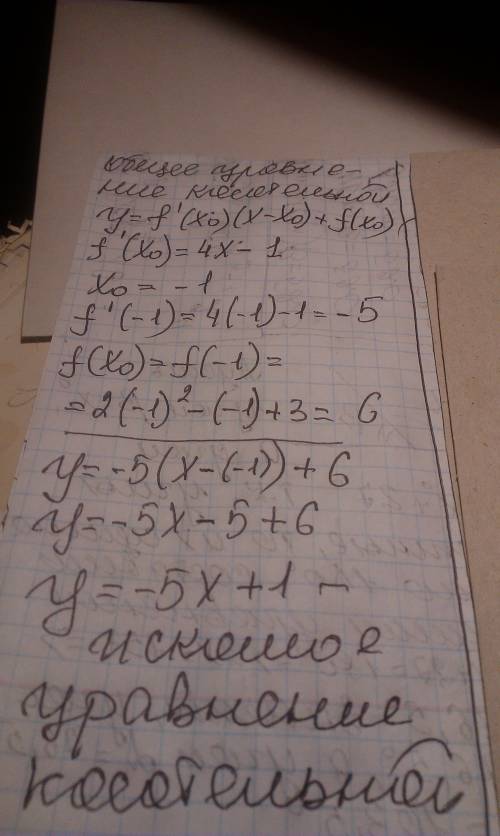 общее уравне-
ние касательной
y=f'(x₀)(x-x₀)+f(x₀)
f'(x₀)=4x-1
x₀=-1
f'(-1)=4(-1)-1=-5
f(x₀)=f(-1)=
=2(-1)²-(-1)+3=6
y=-5(x-(-1))+6
y=-5x-5+6
y=-5x+1-
искомое
уравнение
касательной